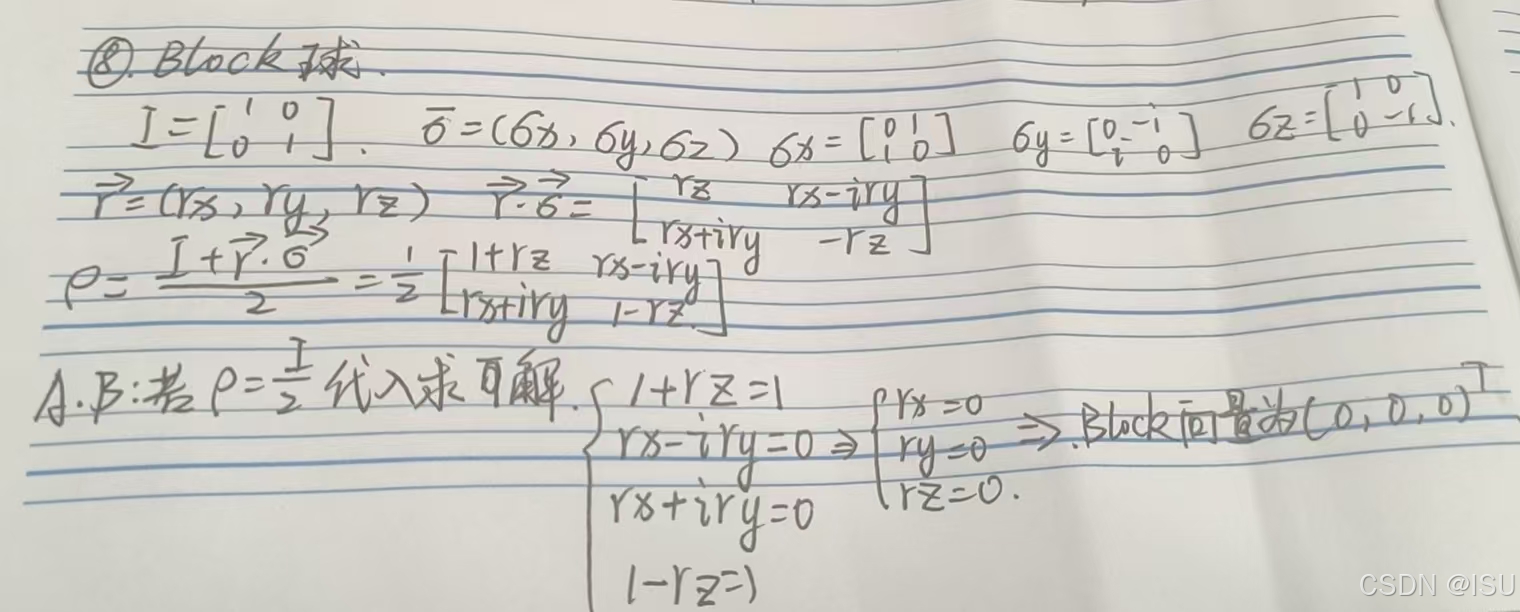 ⑧. Block球.
I=[1 0 0 1]. σ̄=(σx, σy, σz) σx=[0 1 1 0] σy=[0 -i i 0] σz=[1 0 0 -1].
r⃗=(rx, ry, rz) r⃗·σ⃗=[rz rx-iry rx+iry -rz]
ρ=(I+r⃗·σ⃗)/2=1/2[1+rz rx-iry rx+iry 1-rz]
A.B:若ρ=I/2代入求可解.{1+rz=1
rx-iry=0
rx+iry=0
1-rz=1
⇒{rx=0
ry=0
rz=0.
⇒.Block向量为(0, 0, 0)ᵀ
CSDN @ISU